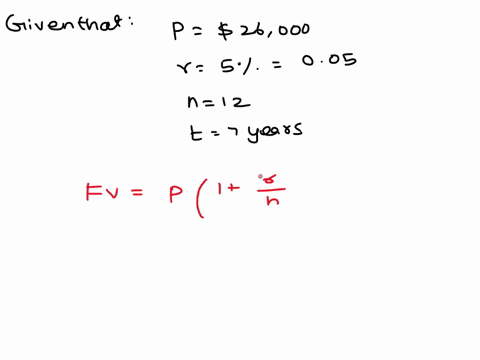 Given that:
P = $ 26,000
r = 5 % = 0.05
n = 12
t = 7 years
FV = P ( 1 + r/n